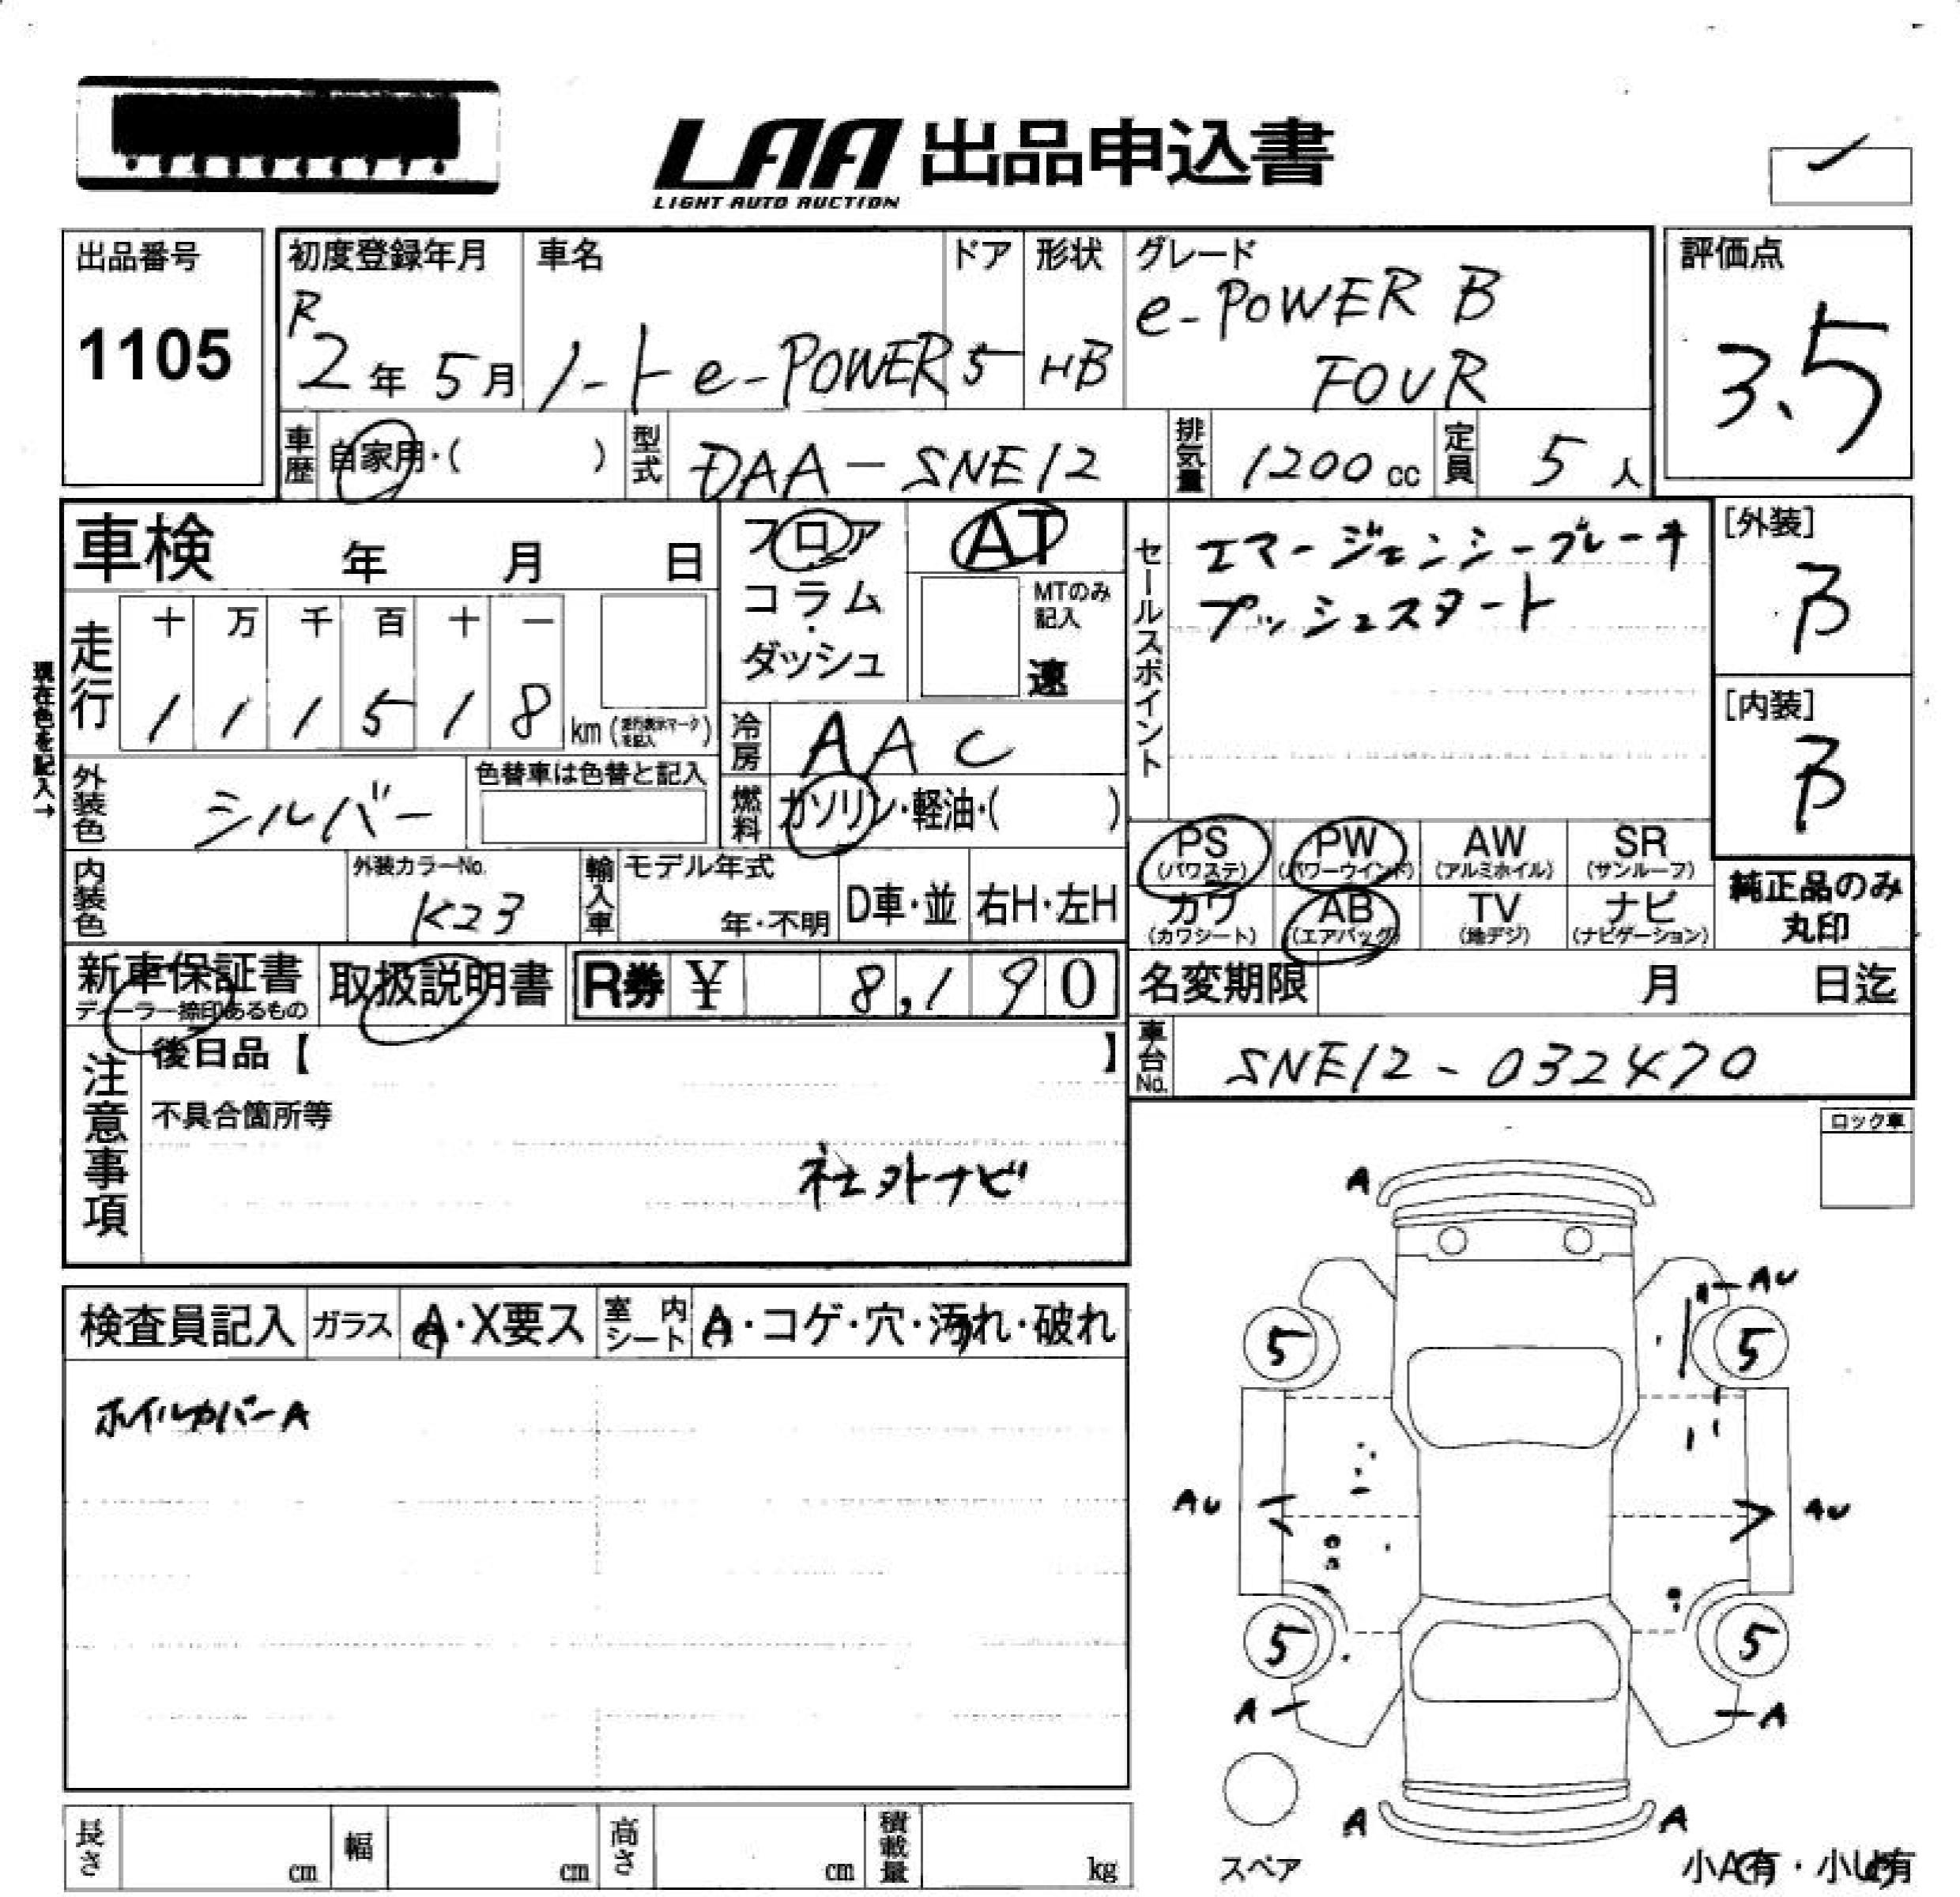 LAA 出品申込書
LIGHT AUTO AUCTION
出品番号
1105
初度登録年月
R
2年5月
車名
ノート e-POWER
ドア
5
形状
HB
グレード
e-POWER B
FOUR
評価点
3.5
車歴 自家用・( )
型式 DAA-SNE12
排気量 1200cc
定員 5人
車検 年 月 日
フロア
コラム
・
ダッシュ
AT
MTのみ
記入
速
セールスポイント
エマージェンシーブレーキ
プッシュスタート
[外装]
B
[内装]
B
現在色を記入→
走行
十 万 千 百 十 一
1 1 1 5 1 8 km (走行表示マークを記入)
冷房 AAC
外装色 シルバー
色替車は色替と記入
燃料 ガソリン・軽油・( )
内装色
外装カラーNo.
K23
輸入車
モデル年式
年・不明
D車・並
右H・左H
PS (パワステ)
PW (パワーウインド)
AW (アルミホイル)
SR (サンルーフ)
カワ (カワシート)
AB (エアバッグ)
TV (地デジ)
ナビ (ナビゲーション)
純正品のみ
丸印
新車保証書
ディーラー捺印あるもの
取扱説明書
R券 ¥ 8,190
名変期限 月 日迄
車台No. SNE12-032470
注意事項
後日品【 】
不具合箇所等
社外ナビ
ロック車
検査員記入
ガラス A・X要ス
室内シート A・コゲ・穴・汚れ・破れ
ホイルカバーA
A
AU
5
5
AU
AU
5
5
A
A
A
A
スペア
小A有・小U有
長さ cm
幅 cm
高さ cm
積載量 kg